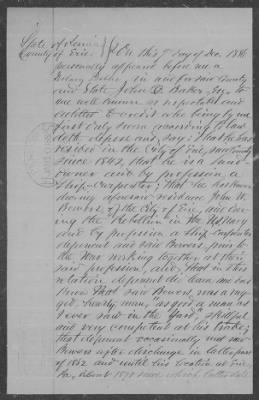 State of Penna }
County of Erie } On this 9 day of Dec, 1886
personally appeared before me a
Notary Public, in and for said County
and State John B. Baker, Esq, to
me well known as reputable and
entitled to credit who being by me
first duly sworn according to law
doth depose and say; That he has
resided in the City of Erie, said County
since 1842, that he is a land-
owner and by profession a
Ship-Carpenter; that he has known
during affiants residence John W.
Bowers, of the City of Erie, and during
the Rebellion in the
and by profession a Ship Carpenter
deponent and said Bowers, prior to
the war working together at their
said profession, and, that in this
relation deponent
that said Bowers, was a rug-
ged, hearty man, "as good a man as
I ever saw in the Yard," skillful
and very competent at his trade;
that deponent occasionally met said
Bowers after discharge in
of 1862 and until his location at Erie
Pa, about 1870 since which latter date